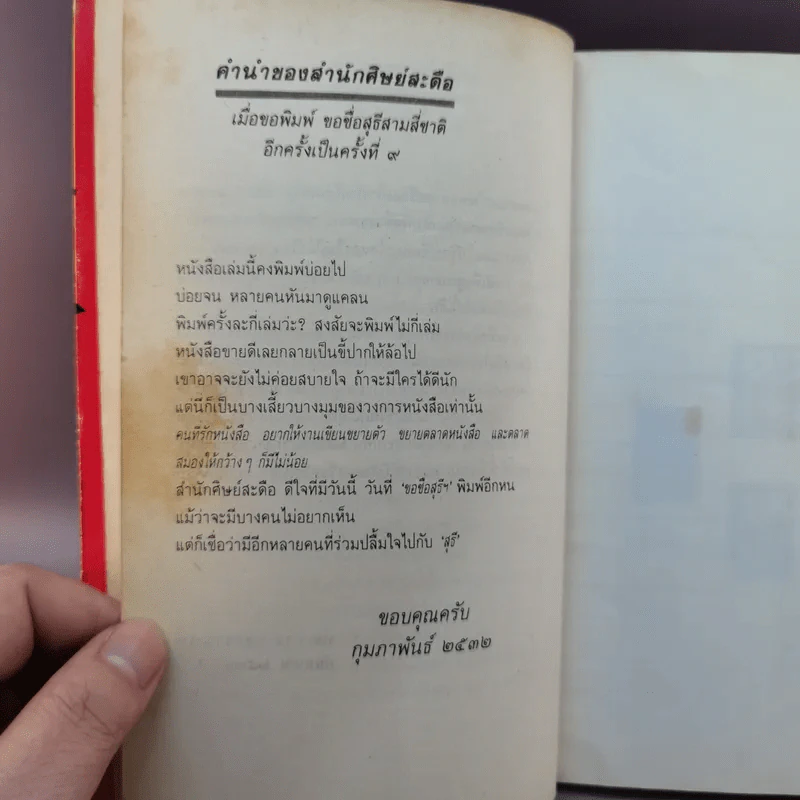 คำนำของสำนักศิษย์สะดือ
เมื่อขอพิมพ์ ขอชื่อสุธีสามสี่ชาติ
อีกครั้งเป็นครั้งที่ ๙
หนังสือเล่มนี้คงพิมพ์บ่อยไป
บ่อยจน หลายคนหันมาดูแคลน
พิมพ์ครั้งละกี่เล่มว่ะ? สงสัยจะพิมพ์ไม่กี่เล่ม
หนังสือขายดีเลยกลายเป็นขี้ปากให้ล้อไป
เขาอาจจะยังไม่ค่อยสบายใจ ถ้าจะมีใครได้ดีนัก
แต่นี่ก็เป็นบางเสี้ยวบางมุมของวงการหนังสือเท่านั้น
คนที่รักหนังสือ อยากให้งานเขียนขยายตัว ขยายตลาดหนังสือ และตลาด
สมองให้กว้าง ๆ ก็มีไม่น้อย
สำนักศิษย์สะดือ ดีใจที่มีวันนี้ วันที่ 'ขอชื่อสุธีฯ' พิมพ์อีกหน
แม้ว่าจะมีบางคนไม่อยากเห็น
แต่ก็เชื่อว่ามีอีกหลายคนที่ร่วมปลื้มใจไปกับ 'สุธี'
ขอบคุณครับ
กุมภาพันธ์ ๒๕๓๒